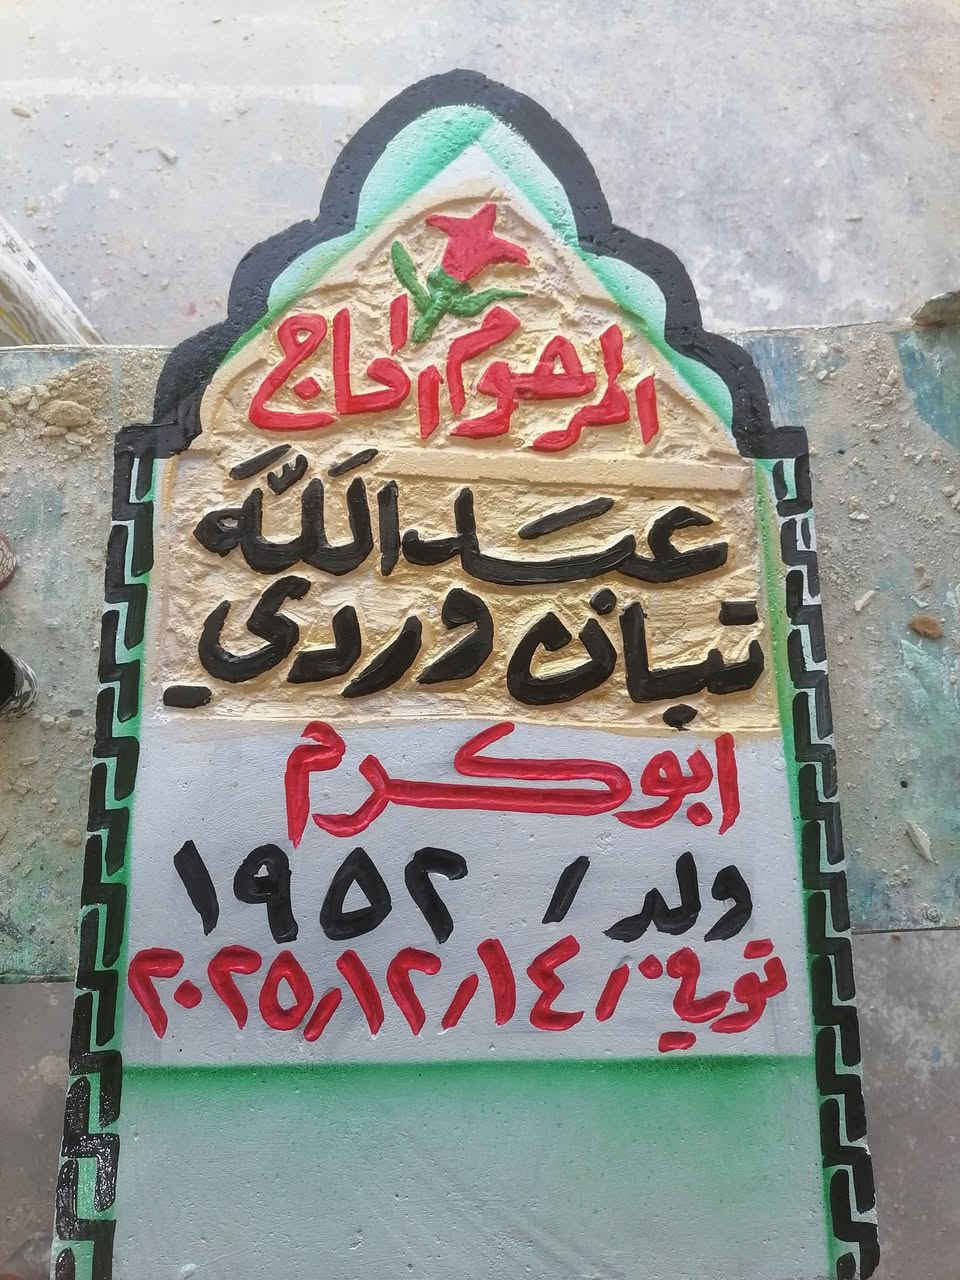 المرحوم الحاج
عبد الله
تبان وردي
ابو كرم
ولد / ١٩٥٢
توفي / ٢٠٢٥/١٢/١٤